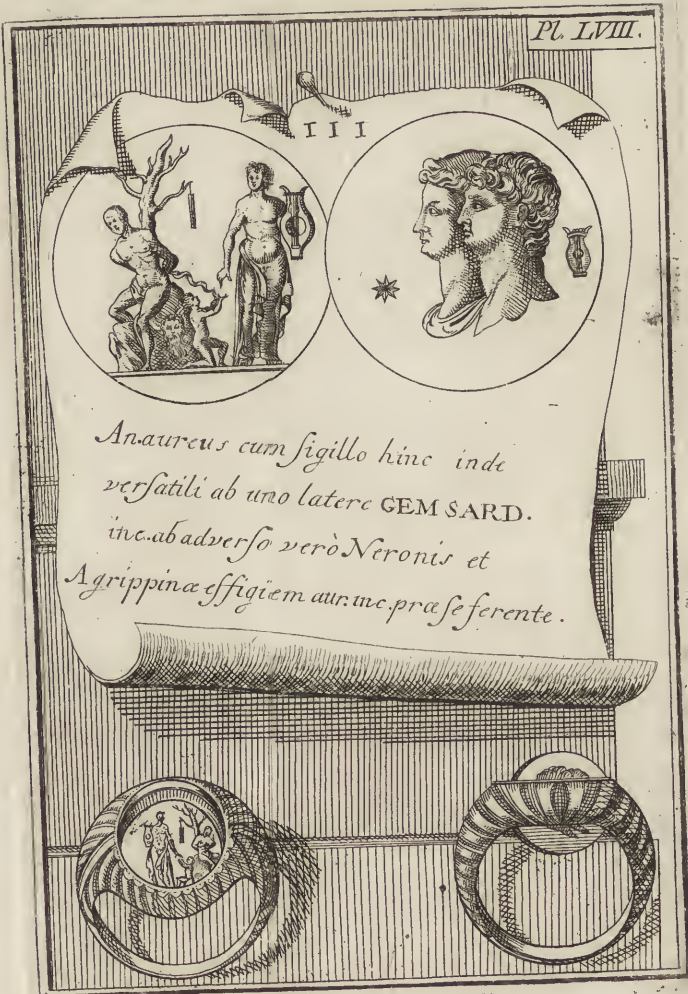 Pl. LVIII.
III
An.aureus cum sigillo hinc inde
versatili ab uno latere GEM SARD.
inc.ab adverso verò Neronis et
Agrippinæ effigiem aur.inc.præ se ferente.